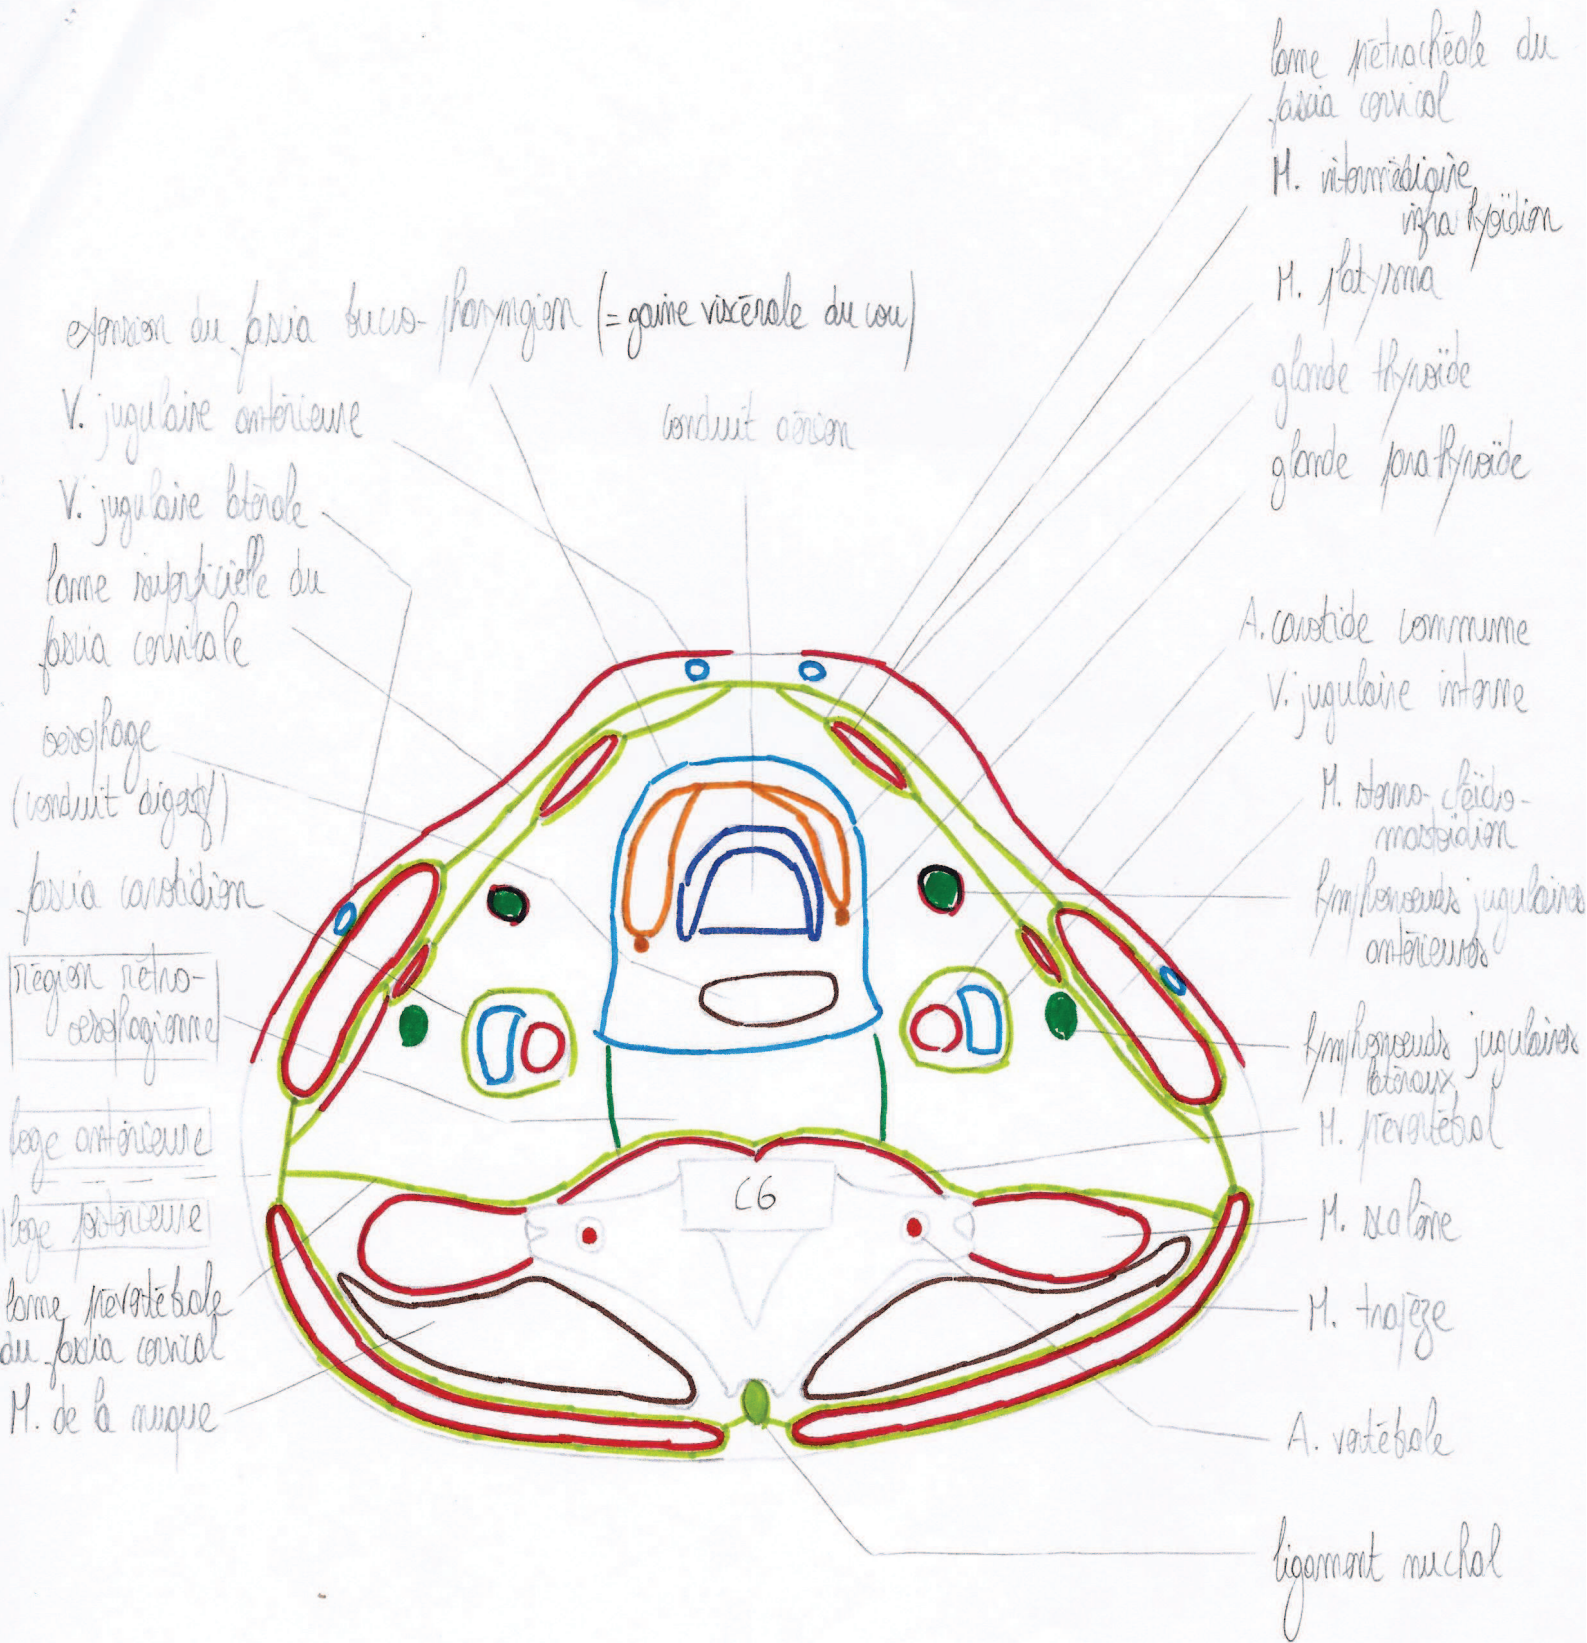 expansion du fascia bucco-pharyngien (= gaine viscérale du cou)
V. jugulaire antérieure
V. jugulaire latérale
lame superficielle du
fascia cervicale
oesophage
(conduit digestif)
fascia carotidien
région rétro-
oesophagienne
loge antérieure
loge postérieure
lame prévertébrale
du fascia cervical
M. de la nuque
conduit aérien
C6
lame prétrachéale du
fascia cervical
M. intermédiaire
infra hyoïdien
M. platysma
glande thyroïde
glande parathyroïde
A. carotide commune
V. jugulaire interne
M. sterno-cléido-
mastoïdien
lymphonoeuds jugulaires
antérieurs
lymphonoeuds jugulaires
latéraux
M. prévertébral
M. scalène
M. trapèze
A. vertébrale
ligament nuchal